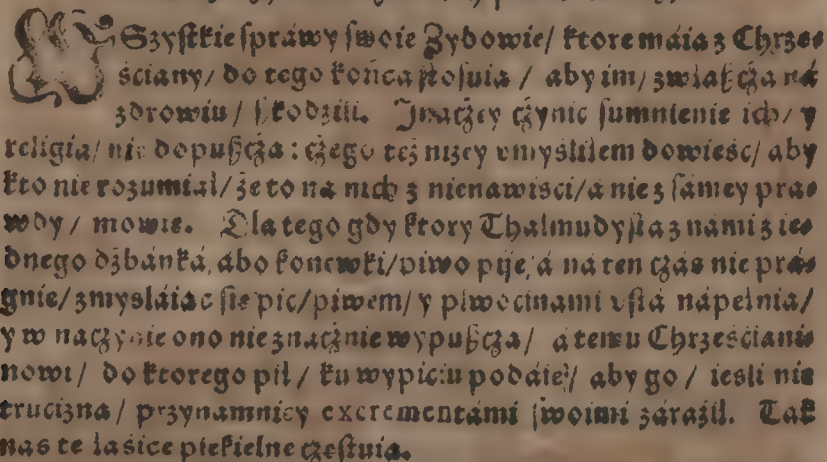 WSzyſtkie ſpráwy ſwoie Zydowie/ ktore máia z Chrze-
ściány/ do tego końcá ſtoſuia / aby im/ zwłaſzczá ná
zdrowiu / ſzkodzili. Ináczey czynić ſumnienie ich/ y
religia/ nie dopuſzcza : czego też niżey vmyśliłem dowieść/ aby
kto nie rozumiał/ że to ná nich z nienawiści/ á nie z ſámey praw-
wdy / mowię. Dla tego gdy ktory Thalmudyſtá z námi z ie-
dnego dżbánká, ábo konewki/ piwo pije, á ná ten czás nie prá-
gnie/ zmyśláiąc ſię pić/ piwem/ y piwocinámi vſtá nápełnia/
y w naczynie ono nieznácznie wypuſzcza/ á temu Chrześciáni-
nowi/ do ktorego pił/ ku wypiciu podáie/ aby go / ieſli nie
trucizną/ przynamniey excrementámi ſwoimi záráźił. Ták
nas te łáſice piekielne czeſtuią.